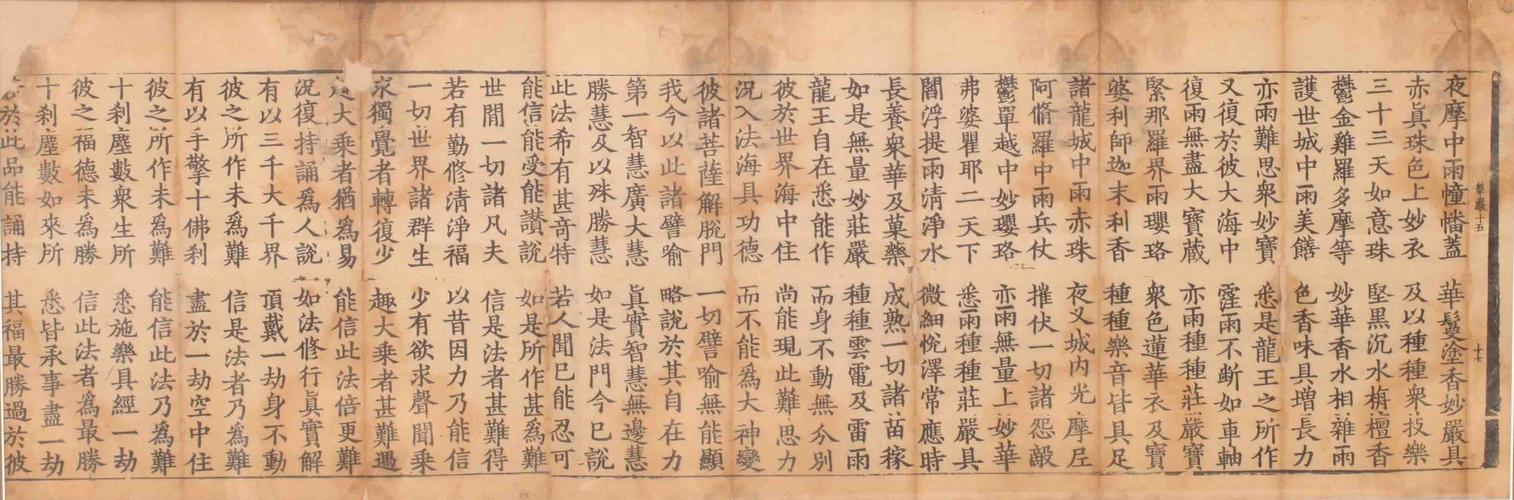 華嚴十五 十七
夜摩中雨幢幡蓋 華鬘塗香妙嚴具
赤真珠色上妙衣 及以種種衆技樂
三十三天如意珠 堅黑沉水栴檀香
鬱金雞羅多摩等 妙華香水相雜雨
護世城中雨美饍 色香味具增長力
亦雨難思衆妙寶 悉是龍王之所作
又復於彼大海中 霔雨不斷如車軸
復雨無盡大寶藏 亦雨種種莊嚴寶
緊那羅界雨瓔珞 衆色蓮華衣及寶
婆利師迦末利香 種種樂音皆具足
諸龍城中雨赤珠 夜叉城内光摩尼
阿脩羅中雨兵仗 摧伏一切諸怨敵
鬱單越中妙瓔珞 亦雨無量上妙華
弗婆瞿耶二天下 悉雨種種莊嚴具
閻浮提雨清淨水 微細悅澤常應時
長養衆華及菓藥 成熟一切諸苗稼
如是無量妙莊嚴 種種雲電及雷雨
龍王自在悉能作 而身不動無分別
彼於世界海中住 尚能現此難思力
況入法海具功德 而不能爲大神變
彼諸菩薩解脫門 一切譬喻無能顯
我今以此諸譬喻 略說於其自在力
第一智慧廣大慧 眞實智慧無邊慧
勝慧及以殊勝慧 如是法門今已說
此法希有甚奇特 若人聞已能忍可
能信能受能讚說 如是所作甚爲難
世閒一切諸凡夫 信是法者甚難得
若有勤修清淨福 以昔因力乃能信
一切世界諸群生 少有欲求聲聞乘
求獨覺者轉復少 趣大乘者甚難遇
大乘者猶爲易 能信此法倍更難
況復持誦爲人說 如法修行眞實解
有以三千大千界 頂戴一劫身不動
彼之所作未爲難 信是法者乃爲難
有以手擎十佛刹 盡於一劫空中住
彼之所作未爲難 能信此法乃爲難
十刹塵數衆生所 悉施樂具經一劫
彼之福德未爲勝 信此法者爲最勝
十刹塵數如來所 悉皆承事盡一劫
於此品能誦持 其福最勝過於彼